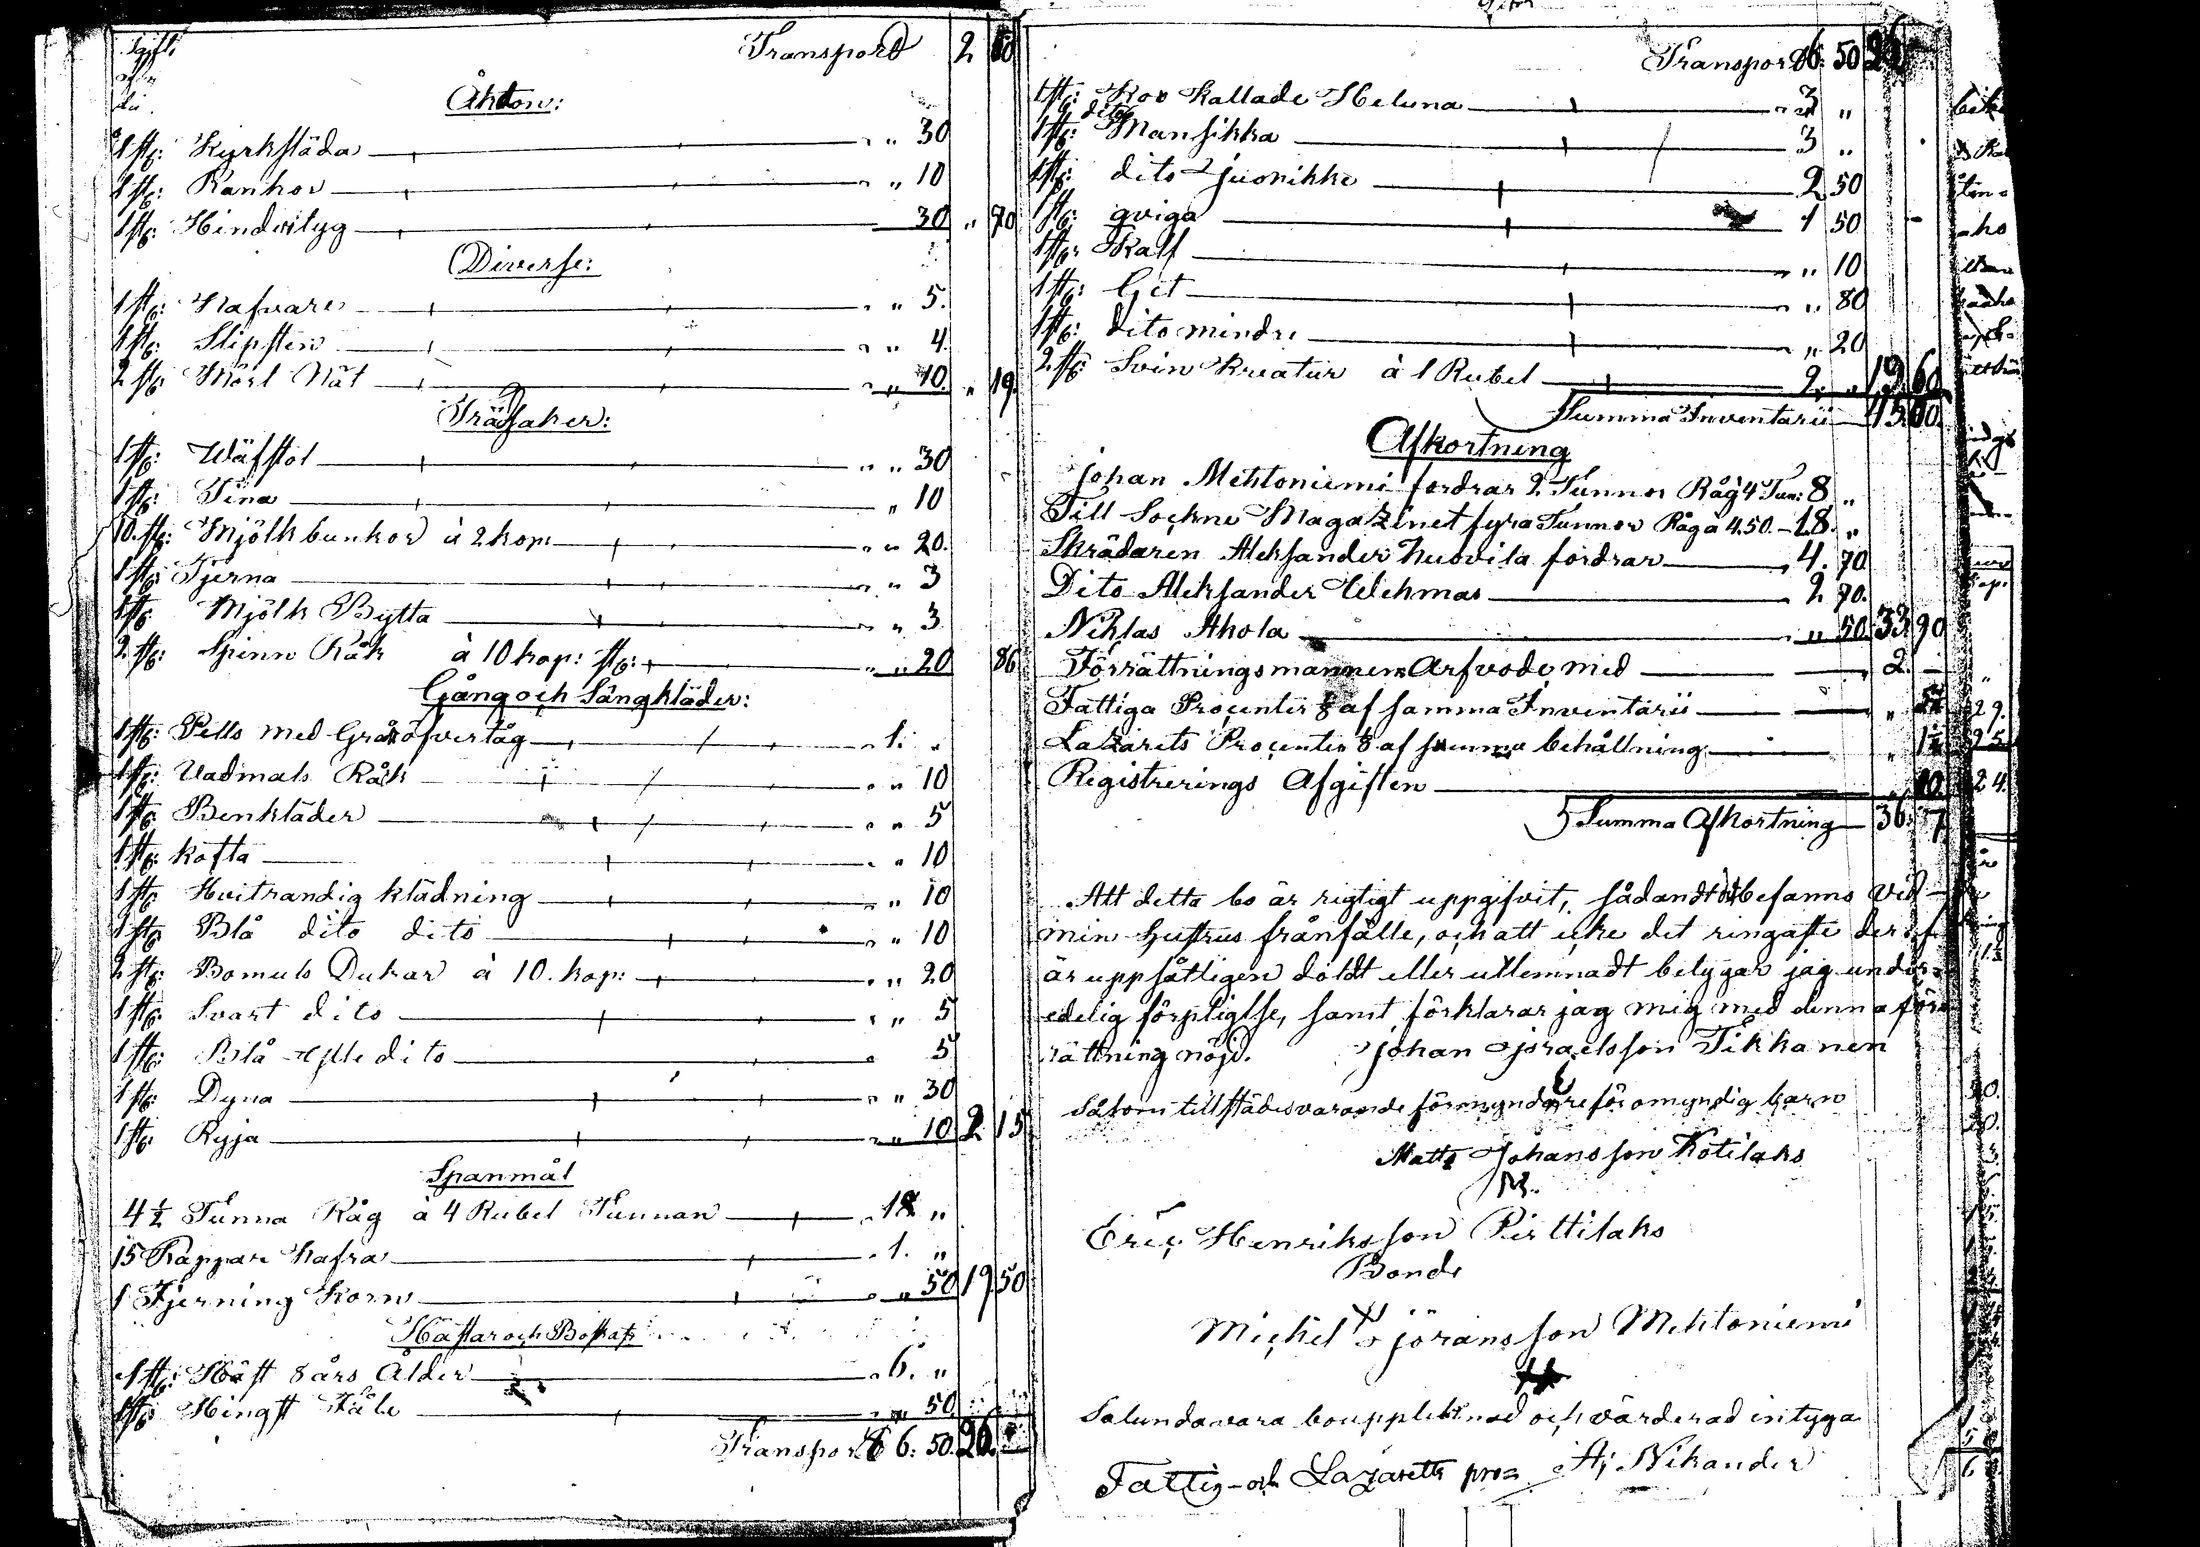 Transport 2 80
Åkdon:
1 st: Kyrksläda " " 30
1 st: Kankor " " 10
1 st: Hindertyg 30 " 70
Diverse:
1 st: Nafvare " " 5.
1 st: Slipsten " " 4.
2 st: Mört Nät " " 10. " 19.
Träsaker:
1 st: Wäfstol " " 30
1 st: Tina " 10
10. st: Mjölkbunkor à 2 kop: " " 20.
1 st: Tjerna " " 3
1 st: Mjölk Bytta " " 3
2 st: Spinn Råk à 10 kop: st: " " 20 86
Gång och Sängkläder:
1 st: Pells med Grått öfvertåg " 1. "
1 st: Vadmals Råck " " 10
1 st: Benkläder " " 5
1 st: kofta " " 10
1 st: Hvitrandig klädning " " 10
1 st: Blå dito dito " " 10
2 st: Bomuls Dukar à 10. kop: " " 20
1 st: Svart dito " " 5
1 st: Blå Ylle dito " 5
1 st: Dyna " " 30
1 st: Ryja " " 10 2 15
Spanmål
4 ½ Tunna Råg à 4 Rubel Tunnan " 18 "
15 Kappar hafra " 1. "
1 Fjerning Korn " " 50 19 50
Hästar och Boskap
1 st: Häst 8 års Ålder " 6. "
1 st: Hingst Fåle " " 50
Transport 6: 50. 26.
Transport 6: 50 26
1 st: Ko kallade Heluna " 3 "
1 st: dito Mansikka 3 "
1 st: dito Juonikke 2 50
1 st: qviga 1 50
1 st: Kalf " " 10
1 st: Get " " 80
1 st: dito mindre " " 20
2 st: Svin Kreatur à 1 Rubel 2: " 19 60
Summa Inventarii 45. 80.
Afkortning
Johan Mehtoniemi fordrar 2 Tunnor Råg à 4 Tun: 8 "
Till Sockne Magazinet fyra Tunnor Råg à 4.50. – 18. "
Skrädaren Aleksander Huovila fordrar 4. 70
Dito Aleksander Wehmas 2 70.
Niklas Ahola " 50 33. 90
Förrättningsmannen Arfvode med 2. –
Fattiga Procenter af samma Inventarii "
Lazarets Procenter af samma behållning "
Registrerings Afgiften " 10.
Summa Afkortning 36: 7
Att detta bo är rigtigt uppgifvit, sådandt det befanns vid
min hustrus frånfälle, och att icke det ringaste deraf
är uppsåtligen doldt eller utlemnadt betygar jag under
edelig förpligtse, samt förklarar jag mig med denna för
rättning nöjd. Johan Isjraelsson Tikkanen
Såsom tillstädesvarande förmyndare för omyndig barn
Matts Johansson Kotilaks
Eric Henriksson Pirttilaks
Bonde
Mickel Sjöransson Mehtoniemi
Salunda vara bouppteknad och värderad intyga
Fattig- och Lazaretts pros Aj Nikander